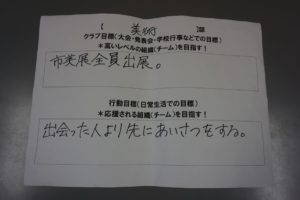 ( 美術 )
クラブ目標(大会・発表会・学校行事などでの目標)
＊高いレベルの組織(チーム)を目指す！
市美展全員出展。
行動目標(日常生活での目標)
＊応援される組織(チーム)を目指す！
出会った人より先にあいさつをする。